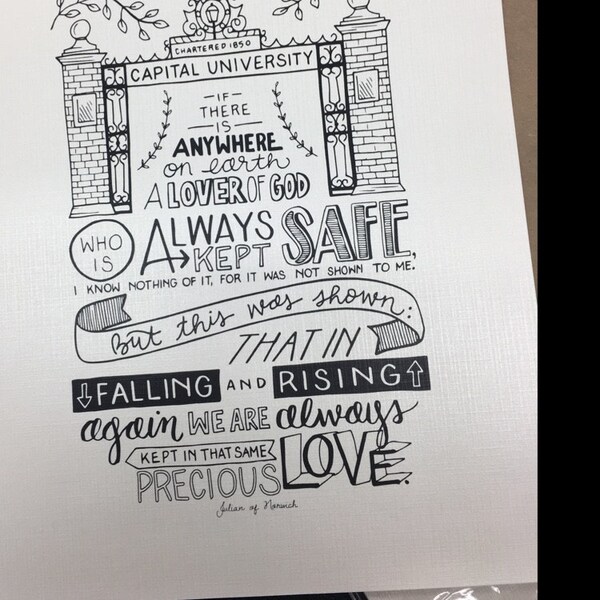 CHARTERED 1850
CAPITAL UNIVERSITY
IF
THERE
IS
ANYWHERE
on earth
A LOVER OF GOD
WHO IS ALWAYS KEPT SAFE,
I KNOW NOTHING OF IT, FOR IT WAS NOT SHOWN TO ME.
But this was shown:
THAT IN
FALLING AND RISING
again WE ARE always
KEPT IN THAT SAME
PRECIOUS LOVE.
Julian of Norwich